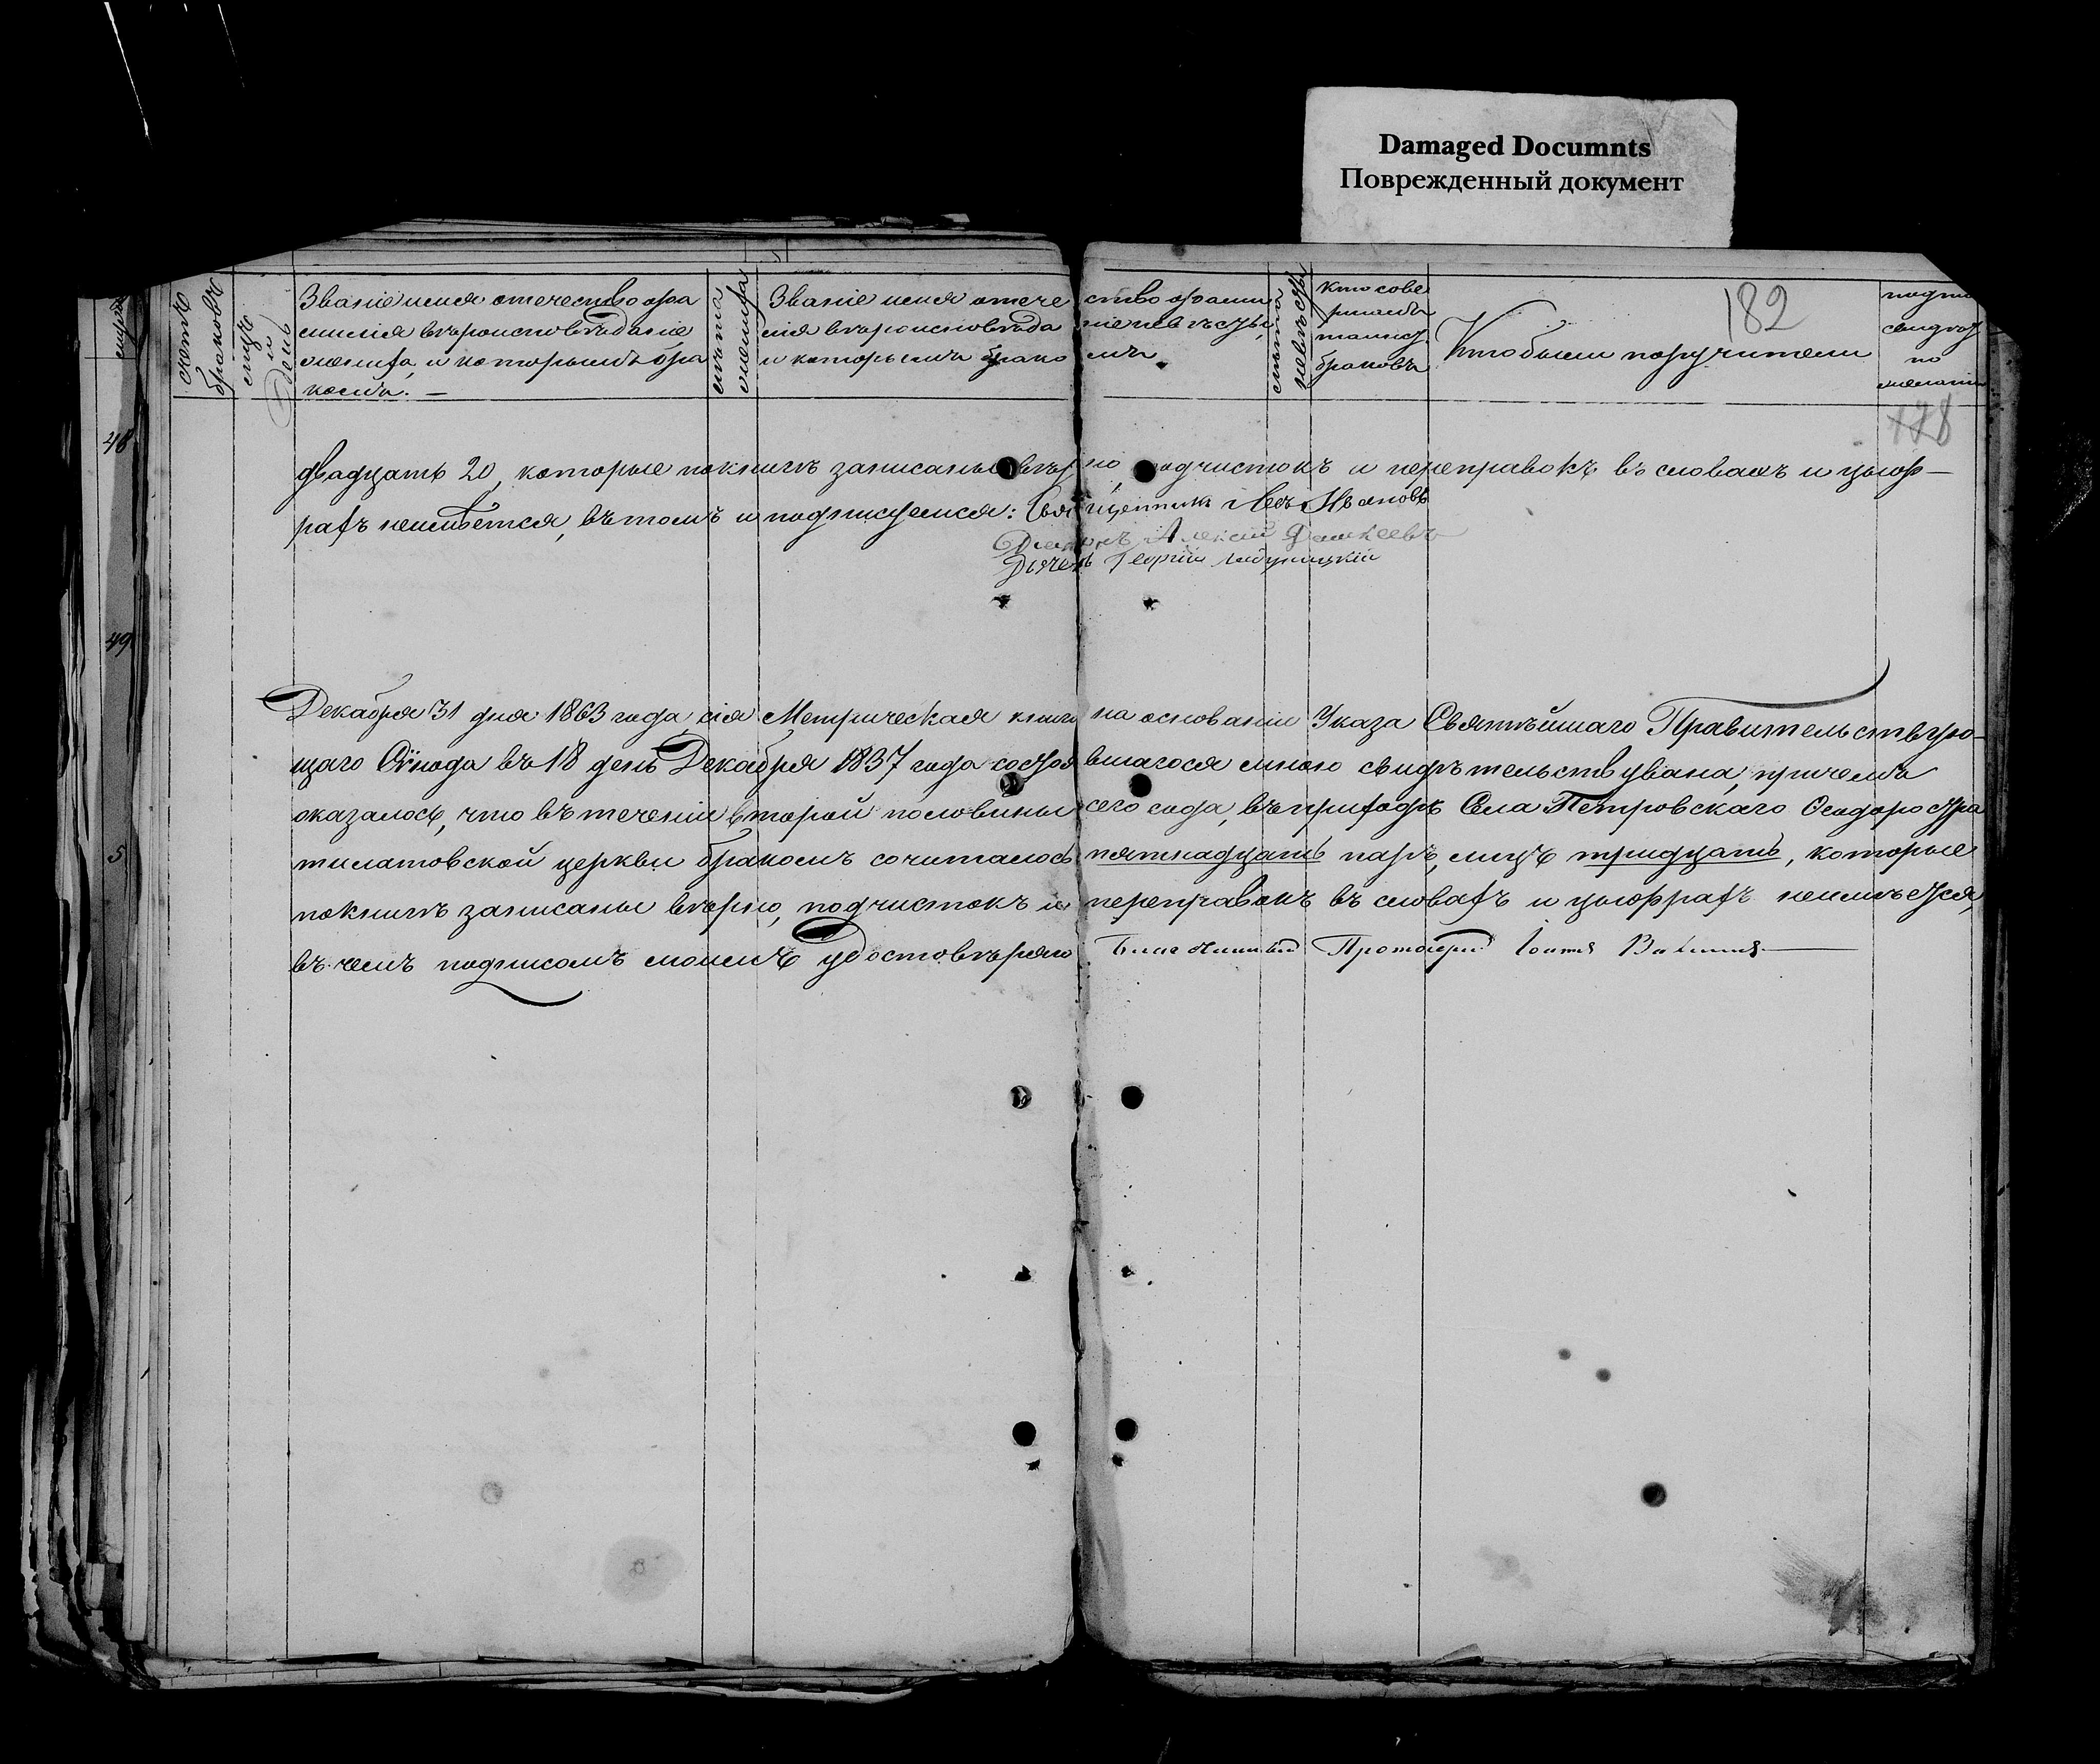 Damaged Documnts
Поврежденный документ
182
счетъ
браковъ
Званіе имя отечество фа
милія вѣроисповѣданіе
жениха, и которымъ бра
комъ. —
лѣта
жениха
Званіе имя отече ство фами
лія вѣроисповѣда ніе невѣсты
и которымъ брако мъ
лѣта
невѣсты
Кто сове
ршалъ
таинст
браковъ
Кто были поручители
по
178
48
49
5
двадцать 20, которые по книгѣ записаны вѣрно, подчистокъ и переправокъ въ словахъ и цыф—
рахъ неимѣется, въ томъ и подписуемся: Священникъ Левъ Ивановъ
Діаконъ Алексій
Дьячекъ Георгій
Декабря 31 дня 1863 года сія Метрическая книга на основаніи Указа Святѣйшаго Правительствую—
щаго Сѵнода въ 18 день Декабря 1837 года состоявшагося мною свидѣтельствувана, причемъ
оказалось, что въ теченіи второй половины сего года, въ приходѣ Села Петровскаго Ѳеодоро Стра
тилатовской церкви бракомъ сочиталось пятнадцать паръ, лицъ тридцать, которые
по книгѣ записаны вѣрно, подчистокъ и переправокъ въ словахъ и цыфрахъ неимѣется,
въ чемъ подписомъ моимъ удостовѣряю Благочинный Протоіерей Іоаннъ